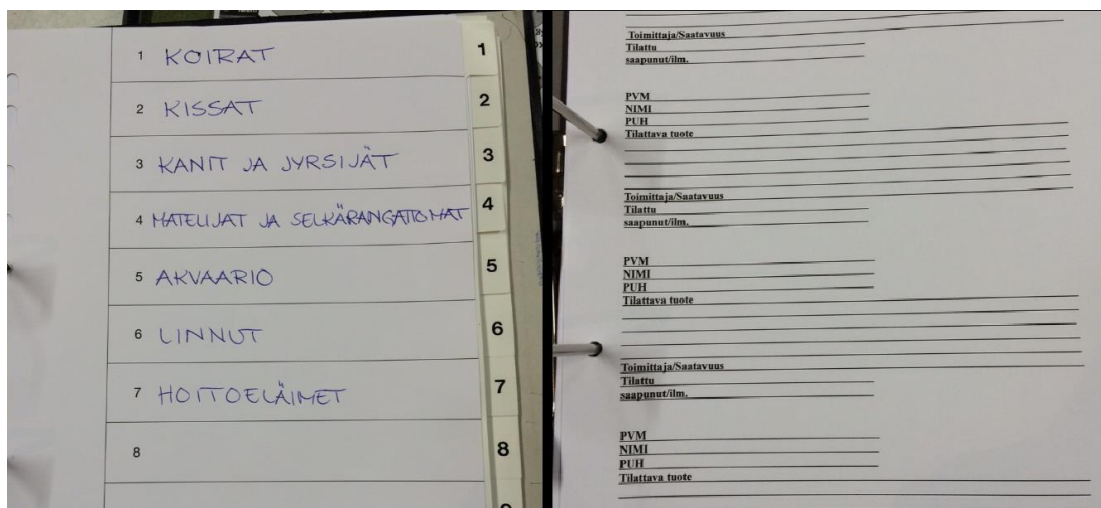 1 KOIRAT
2 KISSAT
3 KANIT JA JYRSIJÄT
4 MATELIJAT JA SELKÄRANGATTOMAT
5 AKVAARIO
6 LINNUT
7 HOITOELÄIMET
8
1
2
3
4
5
6
7
8
Toimittaja/Saatavuus
Tilattu
saapunut/ilm.
PVM
NIMI
PUH
Tilattava tuote
Toimittaja/Saatavuus
Tilattu
saapunut/ilm.
PVM
NIMI
PUH
Tilattava tuote
Toimittaja/Saatavuus
Tilattu
saapunut/ilm.
PVM
NIMI
PUH
Tilattava tuote